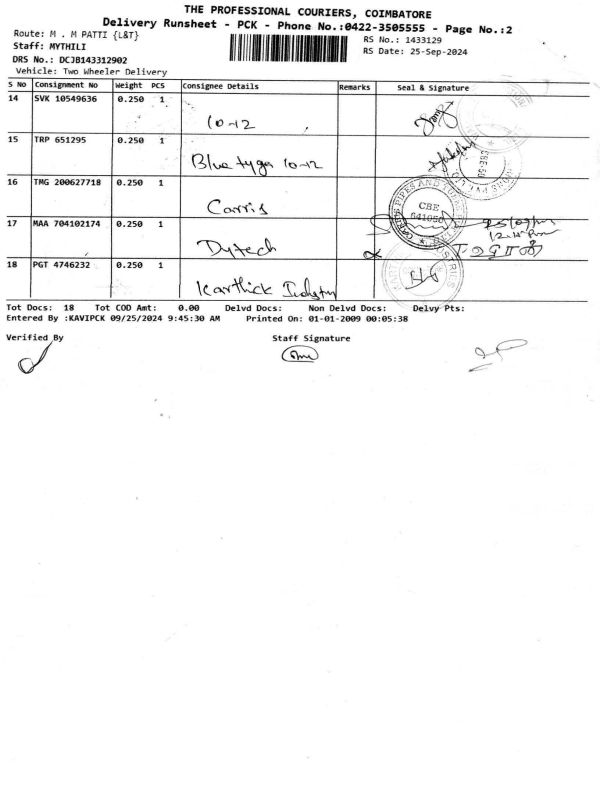 THE PROFESSIONAL COURIERS, COIMBATORE
Delivery Runsheet - PCK - Phone No.:0422-3505555 - Page No.:2
Route: M . M PATTI {L&T}
RS No.: 1433129
Staff: MYTHILI
RS Date: 25-Sep-2024
DRS No.: DCJB143312902
Vehicle: Two Wheeler Delivery
S No Consignment No Weight PCS Consignee Details Remarks Seal & Signature
14 SVK 10549636 0.250 1
10-12
15 TRP 651295 0.250 1
Bluetyga 10-12
16 TMG 200627718 0.250 1
Carris
CBE
641050
17 MAA 704102174 0.250 1
Dytech
18 PGT 4746232 0.250 1
Karthick Industry
Tot Docs: 18 Tot COD Amt: 0.00 Delvd Docs: Non Delvd Docs: Delvy Pts:
Entered By :KAVIPCK 09/25/2024 9:45:30 AM Printed On: 01-01-2009 00:05:38
Verified By Staff Signature